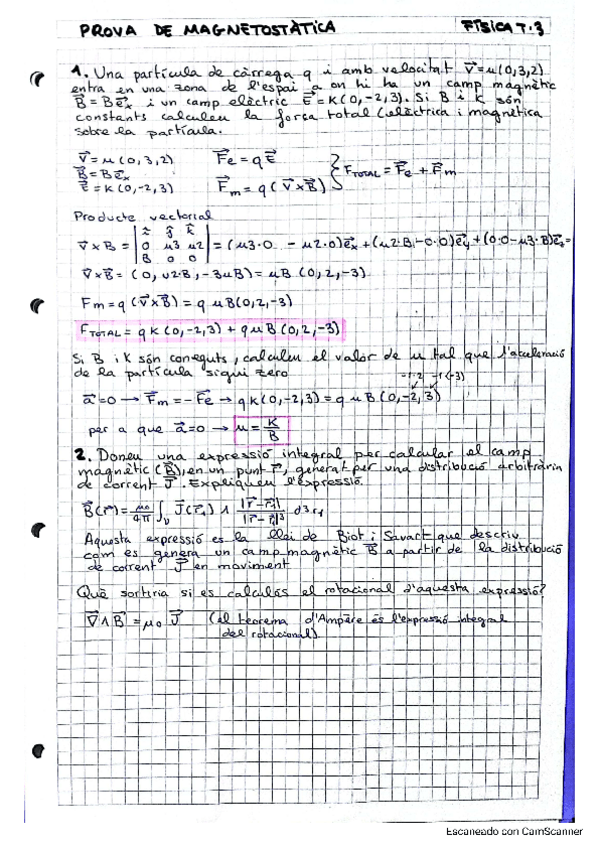 PROVA DE MAGNETOSTÀTICA FÍSICA T.3
1. Una partícula de càrrega q i amb velocitat v⃗=u(0,3,2)
entra en una zona de l'espai a on hi ha un camp magnètic
B⃗ = Be⃗x i un camp elèctric E⃗ = K(0,-2,3). Si B i K són
constants calculeu la força total (elèctrica i magnètica
sobre la partícula.
v⃗ = u(0,3,2) F⃗e = qE⃗
B⃗ = Be⃗x F⃗m = q(v⃗×B⃗) } F⃗TOTAL = F⃗e + F⃗m
E⃗ = K(0,-2,3)
Producte vectorial
v⃗×B = | x̂ ŷ k̂ | 0 u3 u2 | B 0 0 | = (u3·0 - u2·0)e⃗x + (u2·B - 0·0)e⃗y + (0·0 - u3·B)e⃗z =
v⃗×B⃗ = (0, u2·B, -3uB) = uB (0,2,-3)
Fm = q(v⃗×B⃗) = q uB(0,2,-3)
FTOTAL = qK(0,-2,3) + quB(0,2,-3)
Si B i K són coneguts, calculeu el valor de u tal que l'acceleració
de la partícula sigui zero
-1·2 -1(-3)
a⃗=0 → F⃗m = -F⃗e → qK(0,-2,3) = quB(0,-2,3)
per a que a⃗=0 → u = K/B
2. Doneu una expressió integral per calcular el camp
magnètic (B⃗), en un punt r⃗, generat per una distribució arbitrària
de corrent J⃗. Expliqueu l'expressió.
B⃗(r⃗) = μ0/4π ∫v J⃗(r⃗1) ∧ |r⃗-r⃗1|/|r⃗-r⃗1|³ d³r1
Aquesta expressió és la llei de Biot i Savart que descriu
com es genera un camp magnètic B⃗ a partir de la distribució
de corrent J⃗ en moviment
Què sortiria si es calculés el rotacional d'aquesta expressió?
∇⃗∧B⃗ = μ0 J⃗ (el teorema d'Ampère és l'expressió integral
del rotacional)
Escaneado con CamScanner